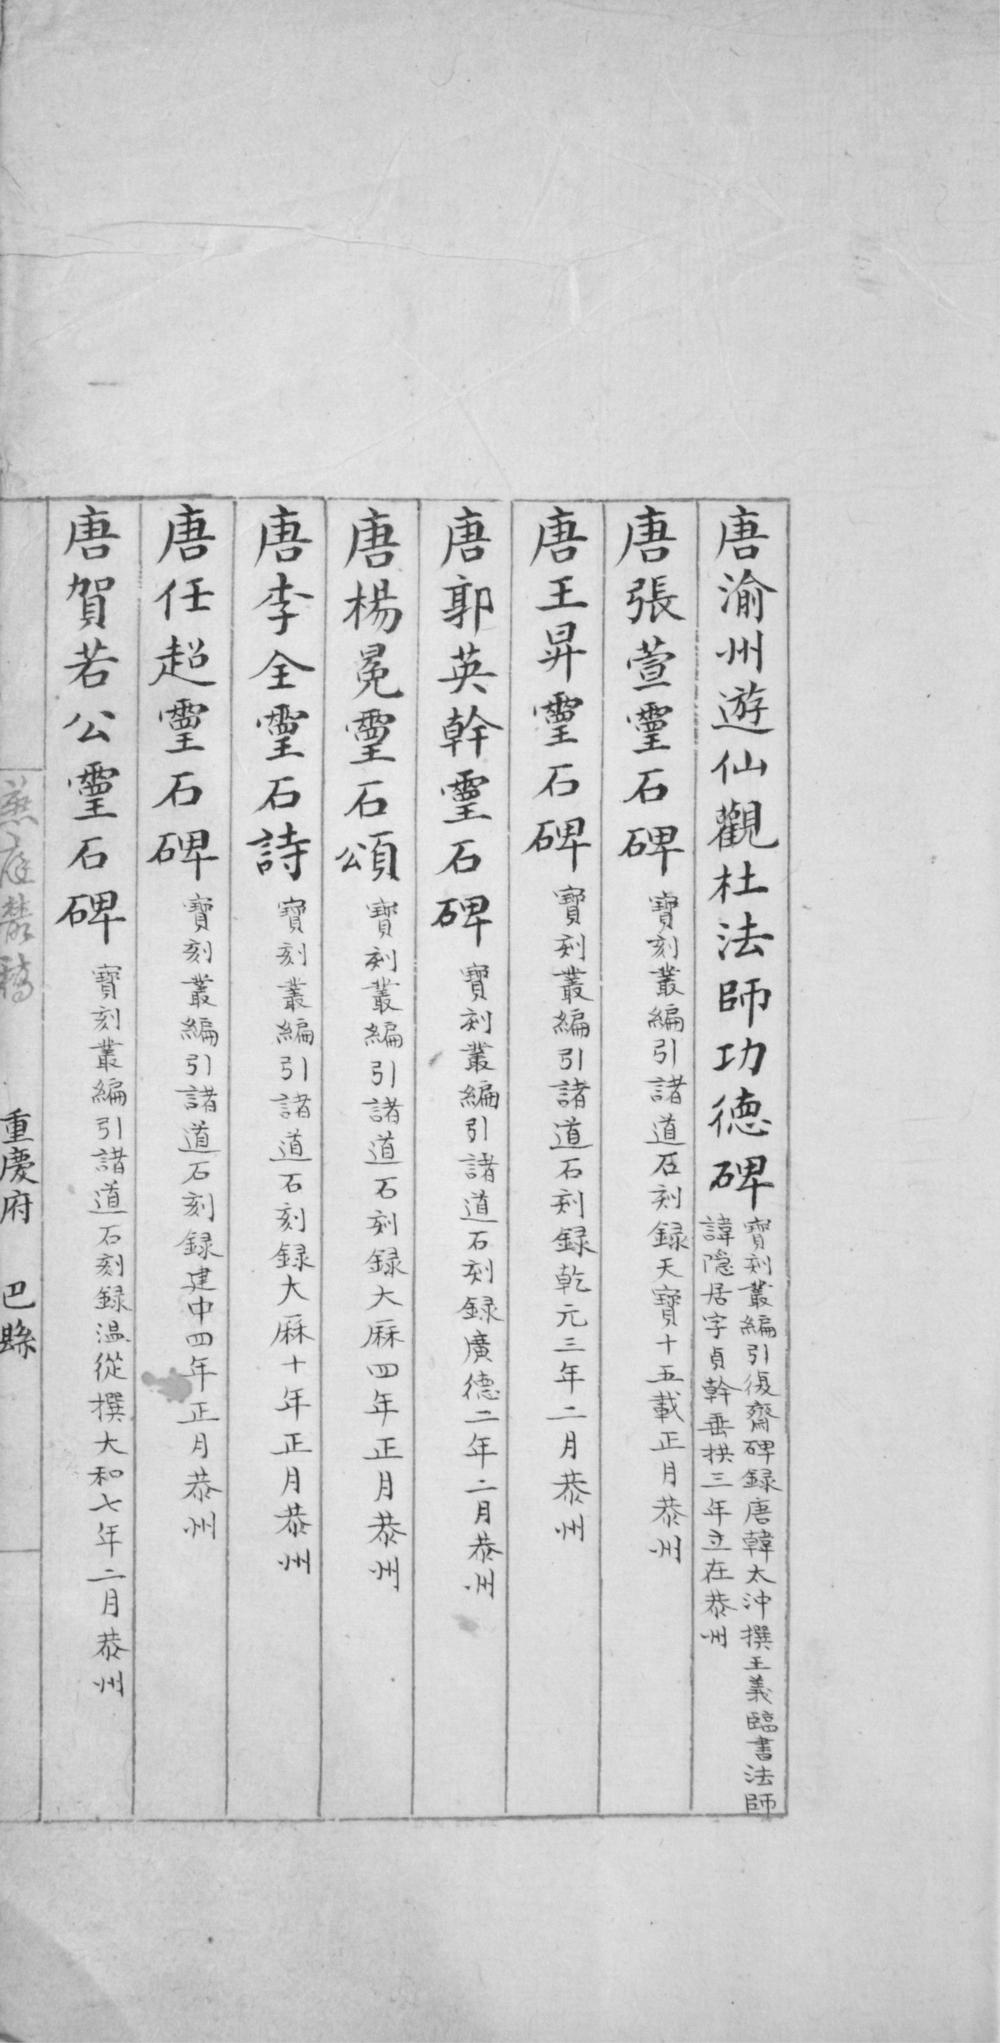 唐渝州遊仙觀杜法師功德碑寶刻叢編引復齋碑録唐韓太沖撰王義臨書法師
諱隐居字貞幹垂拱三年立在恭州
唐張萱靈石碑寶刻叢編引諸道石刻録天寶十五載正月恭州
唐王昇靈石碑寶刻叢編引諸道石刻録乾元三年二月恭州
唐郭英幹靈石碑寶刻叢編引諸道石刻録廣德二年二月恭州
唐楊冕靈石頌寶刻叢編引諸道石刻録大厤四年正月恭州
唐李全靈石詩寶刻叢編引諸道石刻録大厤十年正月恭州
唐任超靈石碑寶刻叢編引諸道石刻録建中四年正月恭州
唐賀若公靈石碑寶刻叢編引諸道石刻録温從撰大和七年二月恭州
重慶府 巴縣